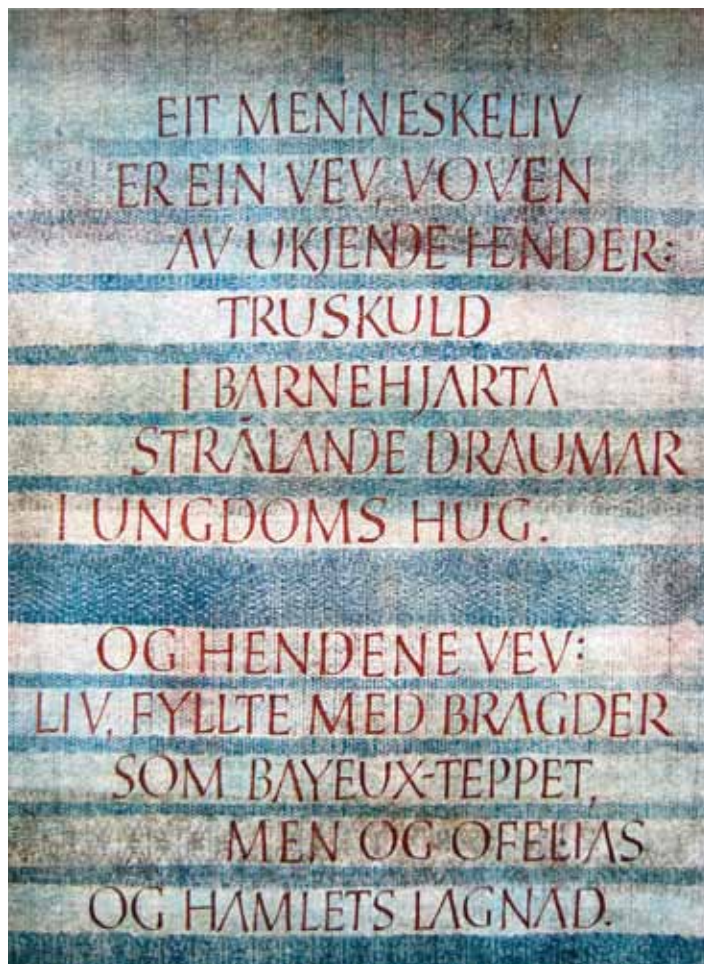 EIT MENNESKELIV
ER EIN VEV, VOVEN
AV UKJENDE HENDER:
TRUSKULD
I BARNEHJARTA
STRÅLANDE DRAUMAR
I UNGDOMS HUG.
OG HENDENE VEV:
LIV, FYLLTE MED BRAGDER
SOM BAYEUX-TEPPET,
MEN OG OFELIAS
OG HAMLETS LAGNAD.